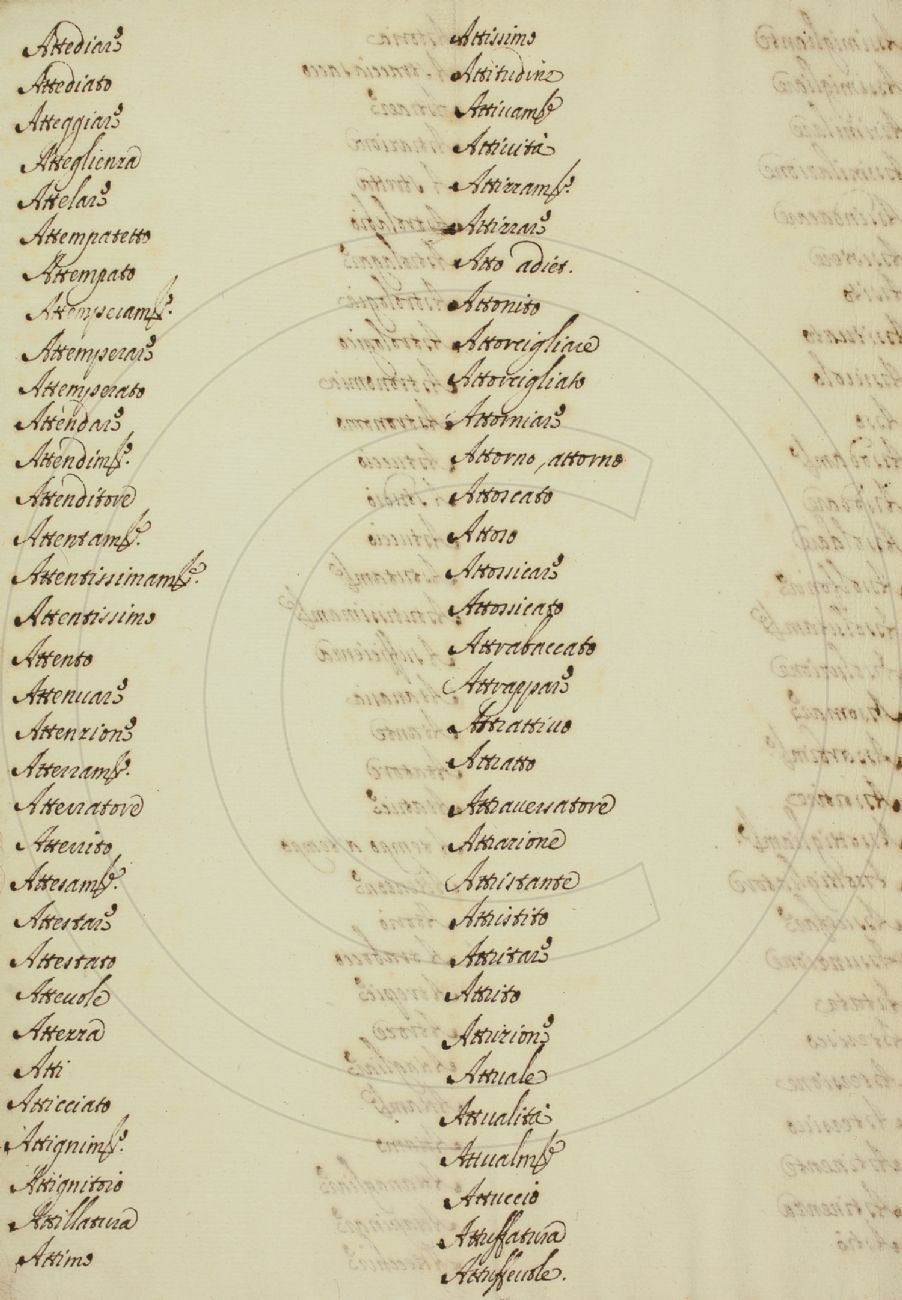 Attediare
Attediato
Atteggiare
Atteglienza
Attelare
Attempatetto
Attempato
Attemperamte.
Attemperare
Attemperato
Attendare
Attendimte.
Attenditore
Attentamte.
Attentissimamte.
Attentissimo
Attento
Attenuare
Attenzione
Atterramte.
Atterratore
Atterrito
Attesamte.
Attestare
Attestato
Attevole
Attezza
Atti
Atticciato
Attignimto.
Attignitoio
Attillatura
Attimo
Attissimo
Attitudine
Attivamte
Attività
Attizzamto.
Attizzare
Atto adiet.
Attonito
Attorcigliare
Attorcigliato
Attorniare
Attorno, attorno
Attoscato
Attoso
Attossicare
Attossicato
Attrabaccato
Attrappare
Attrattivo
Attratto
Attraversatore
Attrazione
Attristante
Attristito
Attritare
Attrito
Attrizione
Attuale
Attualità
Attualmte
Attuccio
Attuffatura
Attuffevole.